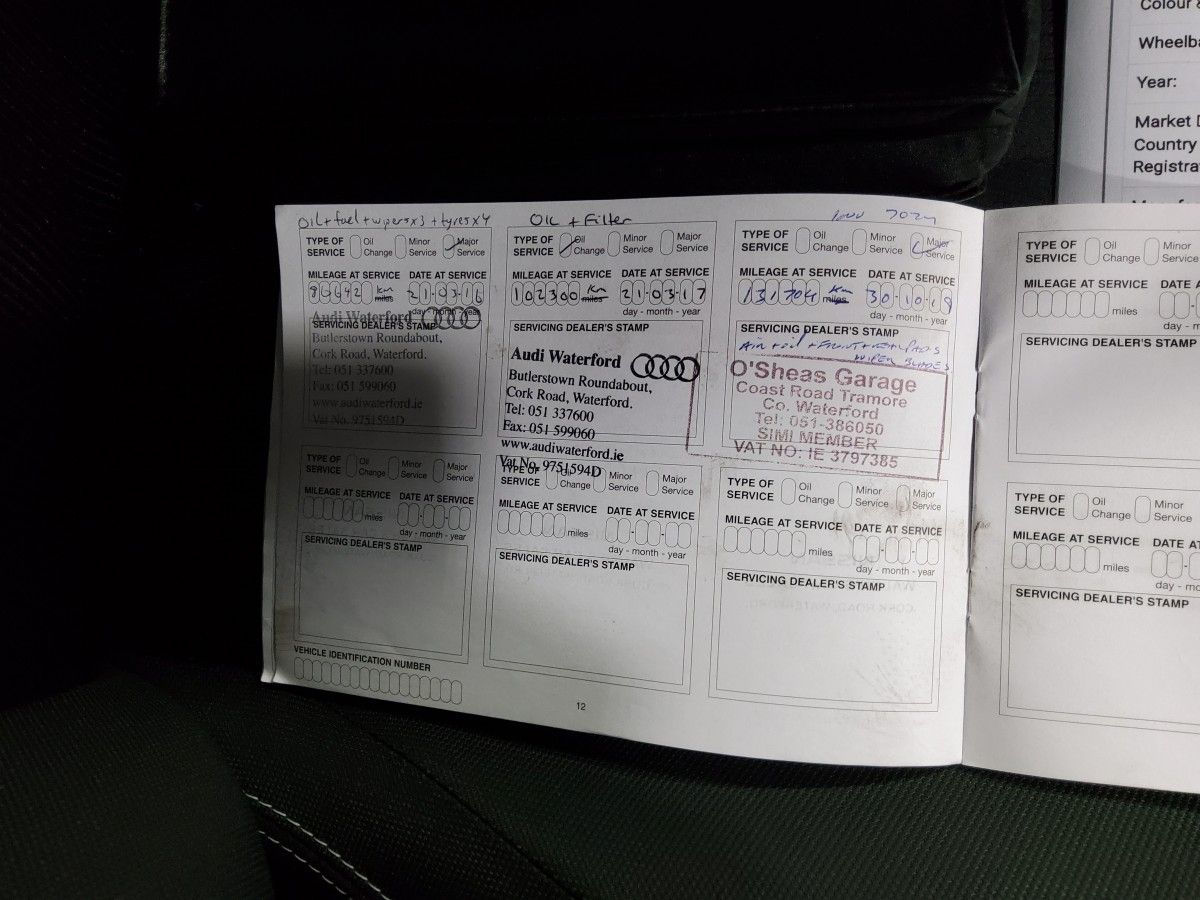 Colour &
Wheelba
Year:
Market D
Country
Registra
Oil + fuel + wipersx3 + tyresx4
TYPE OF SERVICE Oil Change Minor Service Major Service
MILEAGE AT SERVICE DATE AT SERVICE
85642 km miles 21-03-16
day - month - year
Audi Waterford
SERVICING DEALER'S STAMP
Butlerstown Roundabout,
Cork Road, Waterford.
Tel: 051 337600
Fax: 051 599060
www.audiwaterford.ie
Vat No. 9751594D
OIL + Filter
TYPE OF SERVICE Oil Change Minor Service Major Service
MILEAGE AT SERVICE DATE AT SERVICE
102300 km miles 21-03-17
day - month - year
SERVICING DEALER'S STAMP
Audi Waterford
Butlerstown Roundabout,
Cork Road, Waterford.
Tel: 051 337600
Fax: 051 599060
www.audiwaterford.ie
Vat No. 9751594D
TYPE OF SERVICE Oil Change Minor Service Major Service
MILEAGE AT SERVICE DATE AT SERVICE
131704 km miles 30-10-19
day - month - year
SERVICING DEALER'S STAMP
Air + oil + FRONT + PADS
WIPER BLADES
O'Sheas Garage
Coast Road Tramore
Co. Waterford
Tel: 051-386050
SIMI MEMBER
VAT NO: IE 3797385
TYPE OF SERVICE Oil Change Minor Service Major Service
MILEAGE AT SERVICE DATE AT SERVICE
miles
day - month - year
SERVICING DEALER'S STAMP
TYPE OF SERVICE Oil Change Minor Service Major Service
MILEAGE AT SERVICE DATE AT SERVICE
miles
day - month - year
SERVICING DEALER'S STAMP
TYPE OF SERVICE Oil Change Minor Service Major Service
MILEAGE AT SERVICE DATE AT SERVICE
miles
day - month - year
SERVICING DEALER'S STAMP
VEHICLE IDENTIFICATION NUMBER
12
TYPE OF SERVICE Oil Change Minor Service
MILEAGE AT SERVICE DATE A
miles
day - m
SERVICING DEALER'S STAMP
TYPE OF SERVICE Oil Change Minor Service
MILEAGE AT SERVICE DATE AT
miles
day - mo
SERVICING DEALER'S STAMP